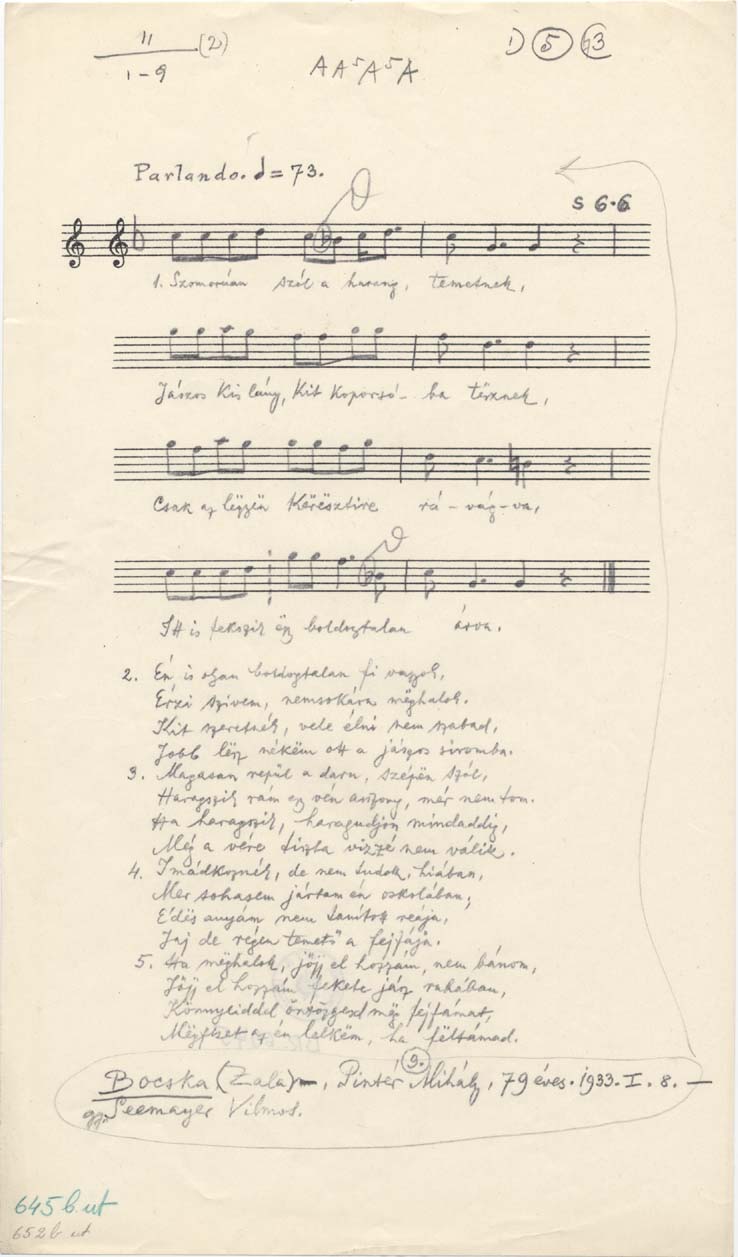 11 (2)
1-9
A A⁵ A⁵ A
D 5
Parlando. = 73.
S 6·6
1. Szomorúan szól a harang, temetnek,
Jászos kis lány, kit koporsó- ba tësznek,
Csak az lëgyën kërësztire rá-vág-va,
Itt is fekszik ëgy boldogtalan árva.
2. Én is olyan boldogtalan fi vagyok,
Érzi szivem, nemsokára mëghalok.
Kit szeretnék, vele élni nem szabad,
Jobb lësz nékëm ott a jászos siromba.
3. Magasan repül a daru, szépën szól,
Haragszik rám egy vén asszony, már nem tom.
Ha haragszik, haragudjon mindaddig,
Még a vére tiszta vizzé nem válik.
4. Imádkoznék, de nem tudok, hiában,
Mer sohasem jártam én oskolában,
Édës anyám nem tanított reája,
Jaj de régen temető a fejfája.
5. Ha mëghalok, jöjj el hozzám, nem bánom,
Jöjj el hozzám fekete jász ruhában,
Könnyeiddel öntözgesd mëg fejfámat,
az én lelkëm, ha föltámad.
9.
Bocska (Zala) –, Pintér Mihály, 79 éves. 1933. I. 8. —
Seemayer Vilmos.
645 b. ut
652 b. ut